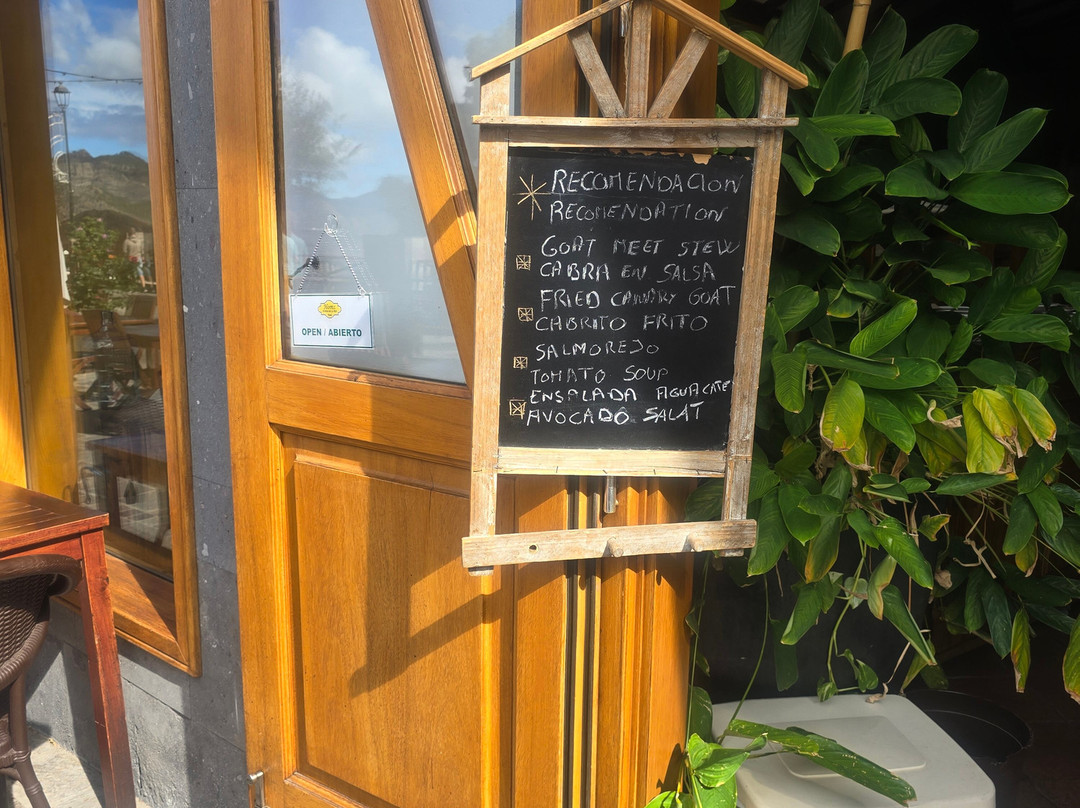 RECOMENDACION
RECOMENDATION
GOAT MEET STEW
CABRA EN SALSA
FRIED CANARY GOAT
CABRITO FRITO
SALMOREJO
TOMATO SOUP
ENSALADA AGUACATE
AVOCADO SALAT
OPEN / ABIERTO